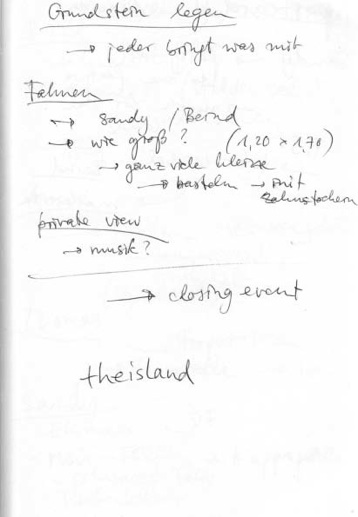 Grundstein legen
→ jeder bringt was mit
Fahnen
→ Sandy / Bernd
→ wie groß? (1,20 × 1,70)
→ ganz viele kleine
→ basteln → mit
Zahnstochern
private view
→ musik?
→ closing event
theisland